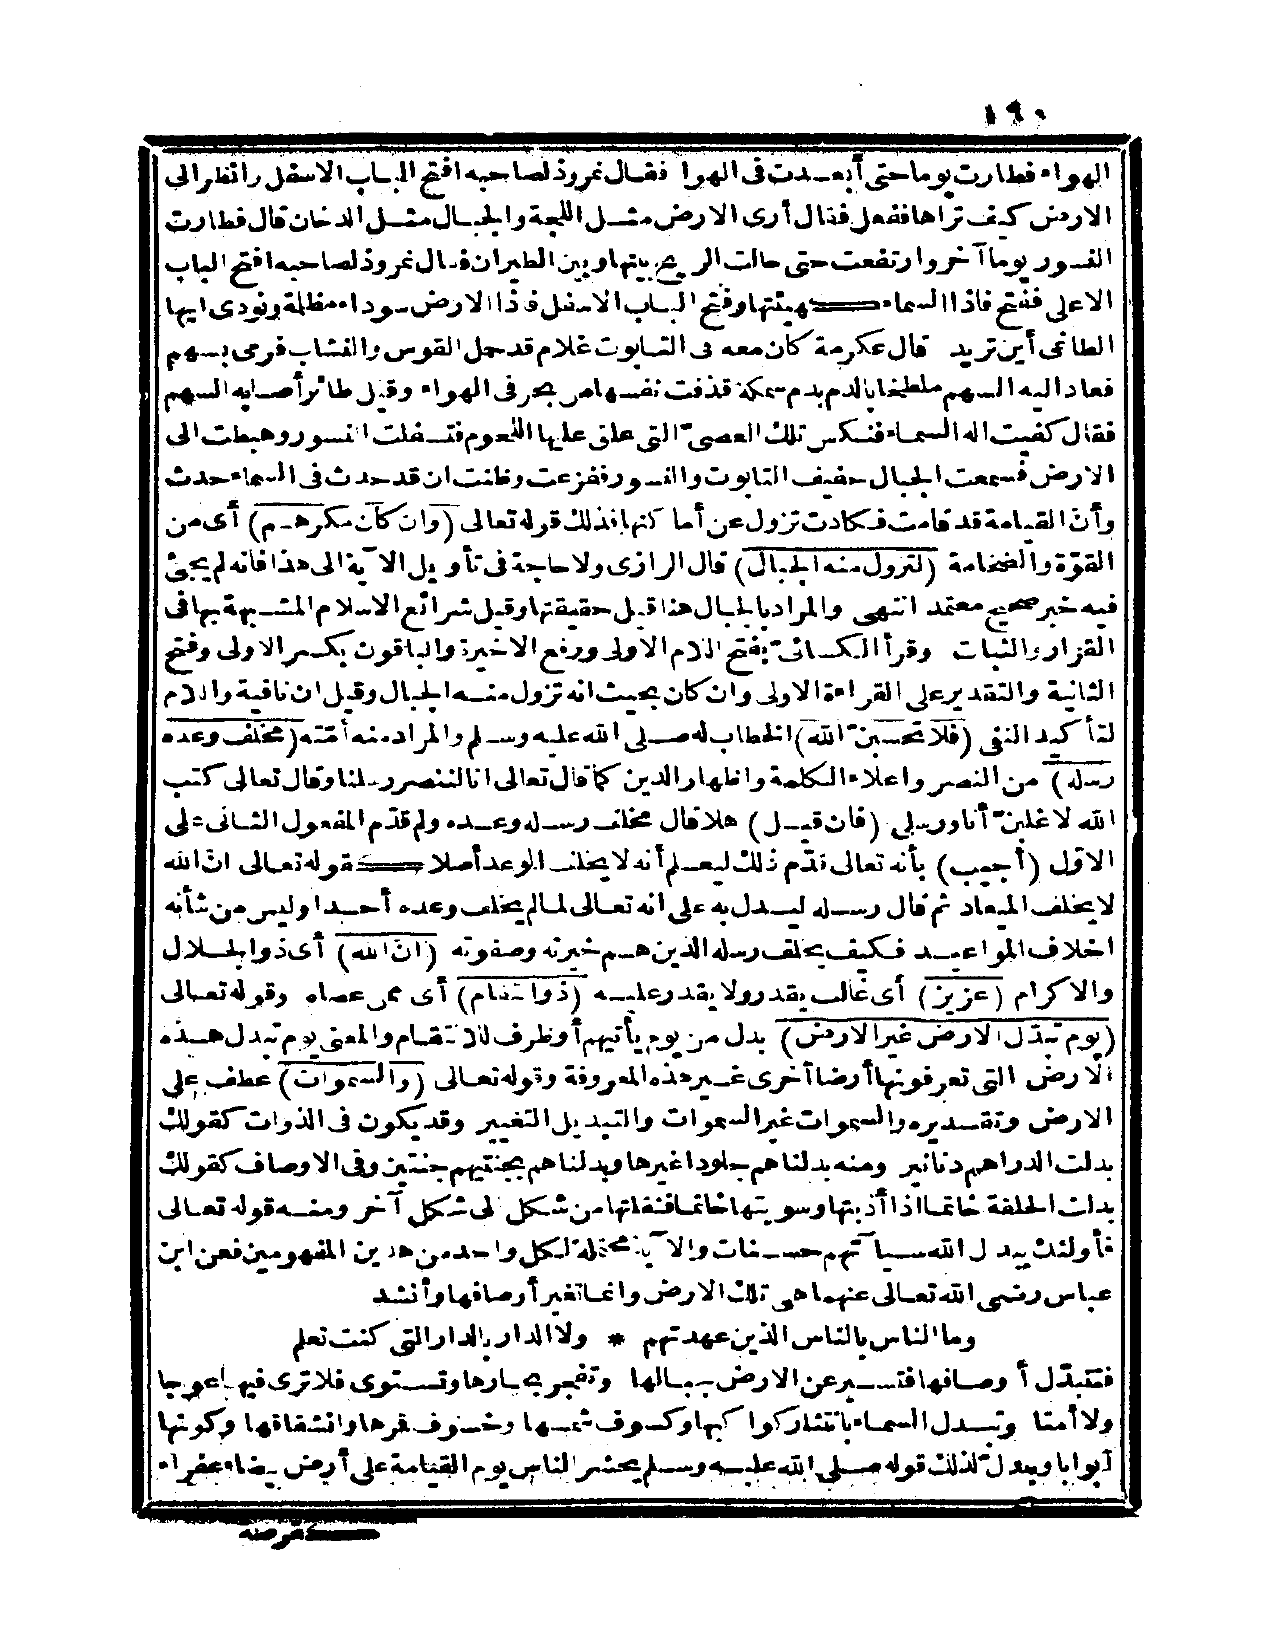 ١٩٠
الهواء فطارت يوما حتى أبعدت فى الهوا فقال نمروذ لصاحبه افتح الباب الاسفل وانظر الى
الارض كيف تراها ففعل فقال أرى الارض مثل اللجة والجبال مثل الدخان قال فطارت
النسور يوما آخر وارتفعت حتى حالت الريح بينها وبين الطيران فقال نمروذ لصاحبه افتح الباب
الاعلى ففتح فاذا السماء كهيئتها وفتح الباب الاسفل فاذا الارض سوداء مظلمة ونودى ايها
الطاغى أين تريد قال عكرمة كان معه فى التابوت غلام قد حمل القوس والنشاب فرمى بسهم
فعاد اليه السهم ملطخا بالدم بدم سمكة قذفت نفسها من بحر فى الهواء وقيل طائر أصابه السهم
فقال كفيت اله السماء فنكس تلك العصىّ التى علق عليها اللحوم فتسفلت النسور وهبطت الى
الارض فسمعت الجبال حفيف التابوت والنسور ففزعت وظنت ان قد حدث فى السماء حدث
وأنّ القيامة قد قامت فكادت تزول عن أما كنها فذلك قوله تعالى (وان كان مكرهم) أى من
القوّة والضخامة (لتزول منه الجبال) قال الرازى ولا حاجة فى تأويل الآية الى هذا فانه لم يجئ
فيه خبر صحيح معتمد انتهى والمراد بالجبال هنا قيل حقيقتها وقيل شرائع الاسلام المشبهة بها فى
القرار والثبات وقرأ الكسائىّ بفتح اللام الاولى ورفع الاخيرة والباقون بكسر الاولى وفتح
الثانية والتقدير على القراءة الاولى وان كان بحيث انه تزول منه الجبال وقيل ان نافية واللام
لتأكيد النفى (فلا تحسبنّ الله) الخطاب له صلى الله عليه وسلم والمراد منه أمّته (مخلف وعده
رسله) من النصر واعلاء الكلمة واظهار الدين كما قال تعالى انا لننصر رسلنا وقال تعالى كتب
الله لاغلبنّ أنا ورسلى (فان قيل) هلا قال مخلف رسله وعده ولم قدّم المفعول الثانى على
الاوّل (أجيب) بأنه تعالى قدّم ذلك ليعلم أنه لا يخلف الوعد أصلا كقوله تعالى انّ الله
لا يخلف الميعاد ثم قال رسله ليدل به على انه تعالى لما لم يخلف وعده أحدا وليس من شأنه
اخلاف المواعيد فكيف يخلف رسله الذين هم خيرته وصفوته (انّ الله) أى ذو الجلال
والاكرام (عزيز) أى غالب يقدر ولا يقدر عليه (ذو انتقام) أى ممن عصاه وقوله تعالى
(يوم تبدّل الارض غير الارض) بدل من يوم يأتيهم أو ظرف للانتقام والمعنى يوم تبدل هذه
الارض التى تعرفونها أرضا أخرى غير هذه المعروفة وقوله تعالى (والسموات) عطف على
الارض وتقديره والسموات غير السموات والتبديل التغيير وقد يكون فى الذوات كقولك
بدلت الدراهم دنانير ومنه بدلناهم جلودا غيرها وبدلناهم بجنتيهم جنتين وفى الاوصاف كقولك
بدلت الحلقة خاتما اذا أذبتها وسويتها خاتما فنقلتها من شكل الى شكل آخر ومنه قوله تعالى
فأولئك يبدل الله سيآتهم حسنات والآية محتملة لكل واحد من هذين المفهومين فعن ابن
عباس رضى الله تعالى عنهما هى تلك الارض وانما تغير أوصافها وأنشد
وما الناس بالناس الذين عهدتهم * ولا الدار بالدار التى كنت تعلم
فتتبدّل أوصافها فتسير عن الارض جبالها وتفجر بحارها وتستوى فلا ترى فيها عوجا
ولا أمتا وتبدل السماء بانتثار كواكبها وكسوف شمسها وخسوف قمرها وانشقاقها وكونها
أبوابا ويدل لذلك قوله صلى الله عليه وسلم يحشر الناس يوم القيامة على أرض بيضاء عفراء
كقرصة